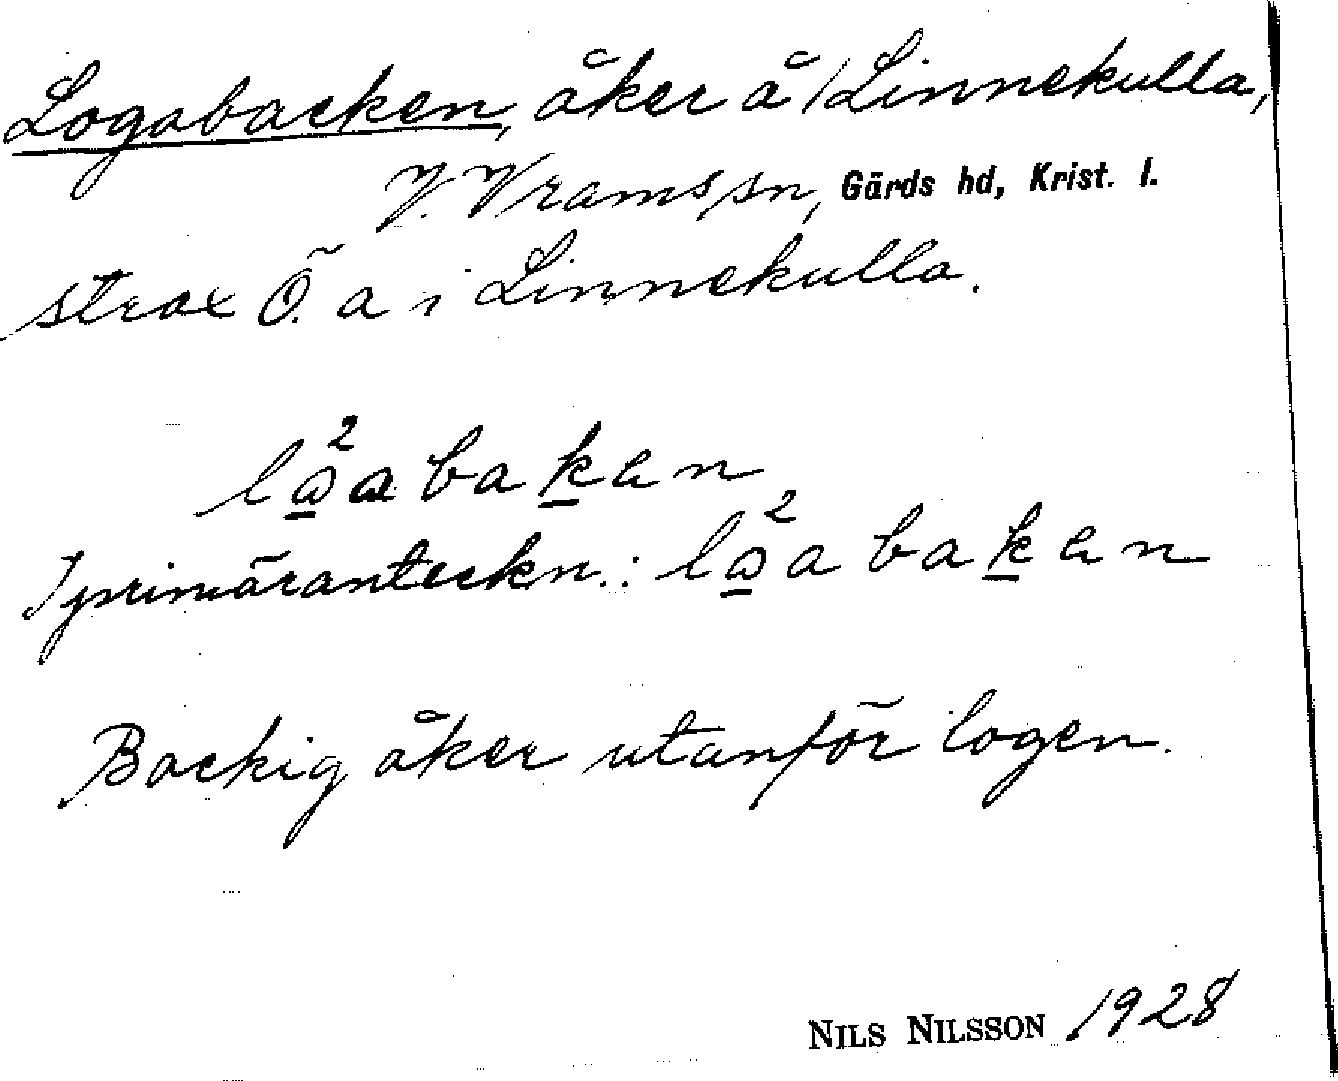 Logabacken, åker å 1 Linnekulla,
V. Vrams sn, Gärds hd, Krist. l.
strax Ö. a i Linnekulla.
lå²abakan
I primäranteckn.: lå²abakan
Backig åker utanför logen.
NILS NILSSON 1928